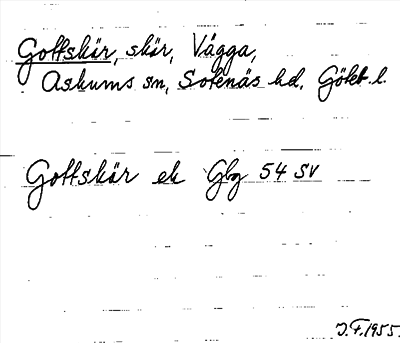 Gottskär, skär, Vägga,
Askums sn, Sotenäs hd. Göteb. l.
Gottskär ek Gbg 54 SV
J. F. 1955.